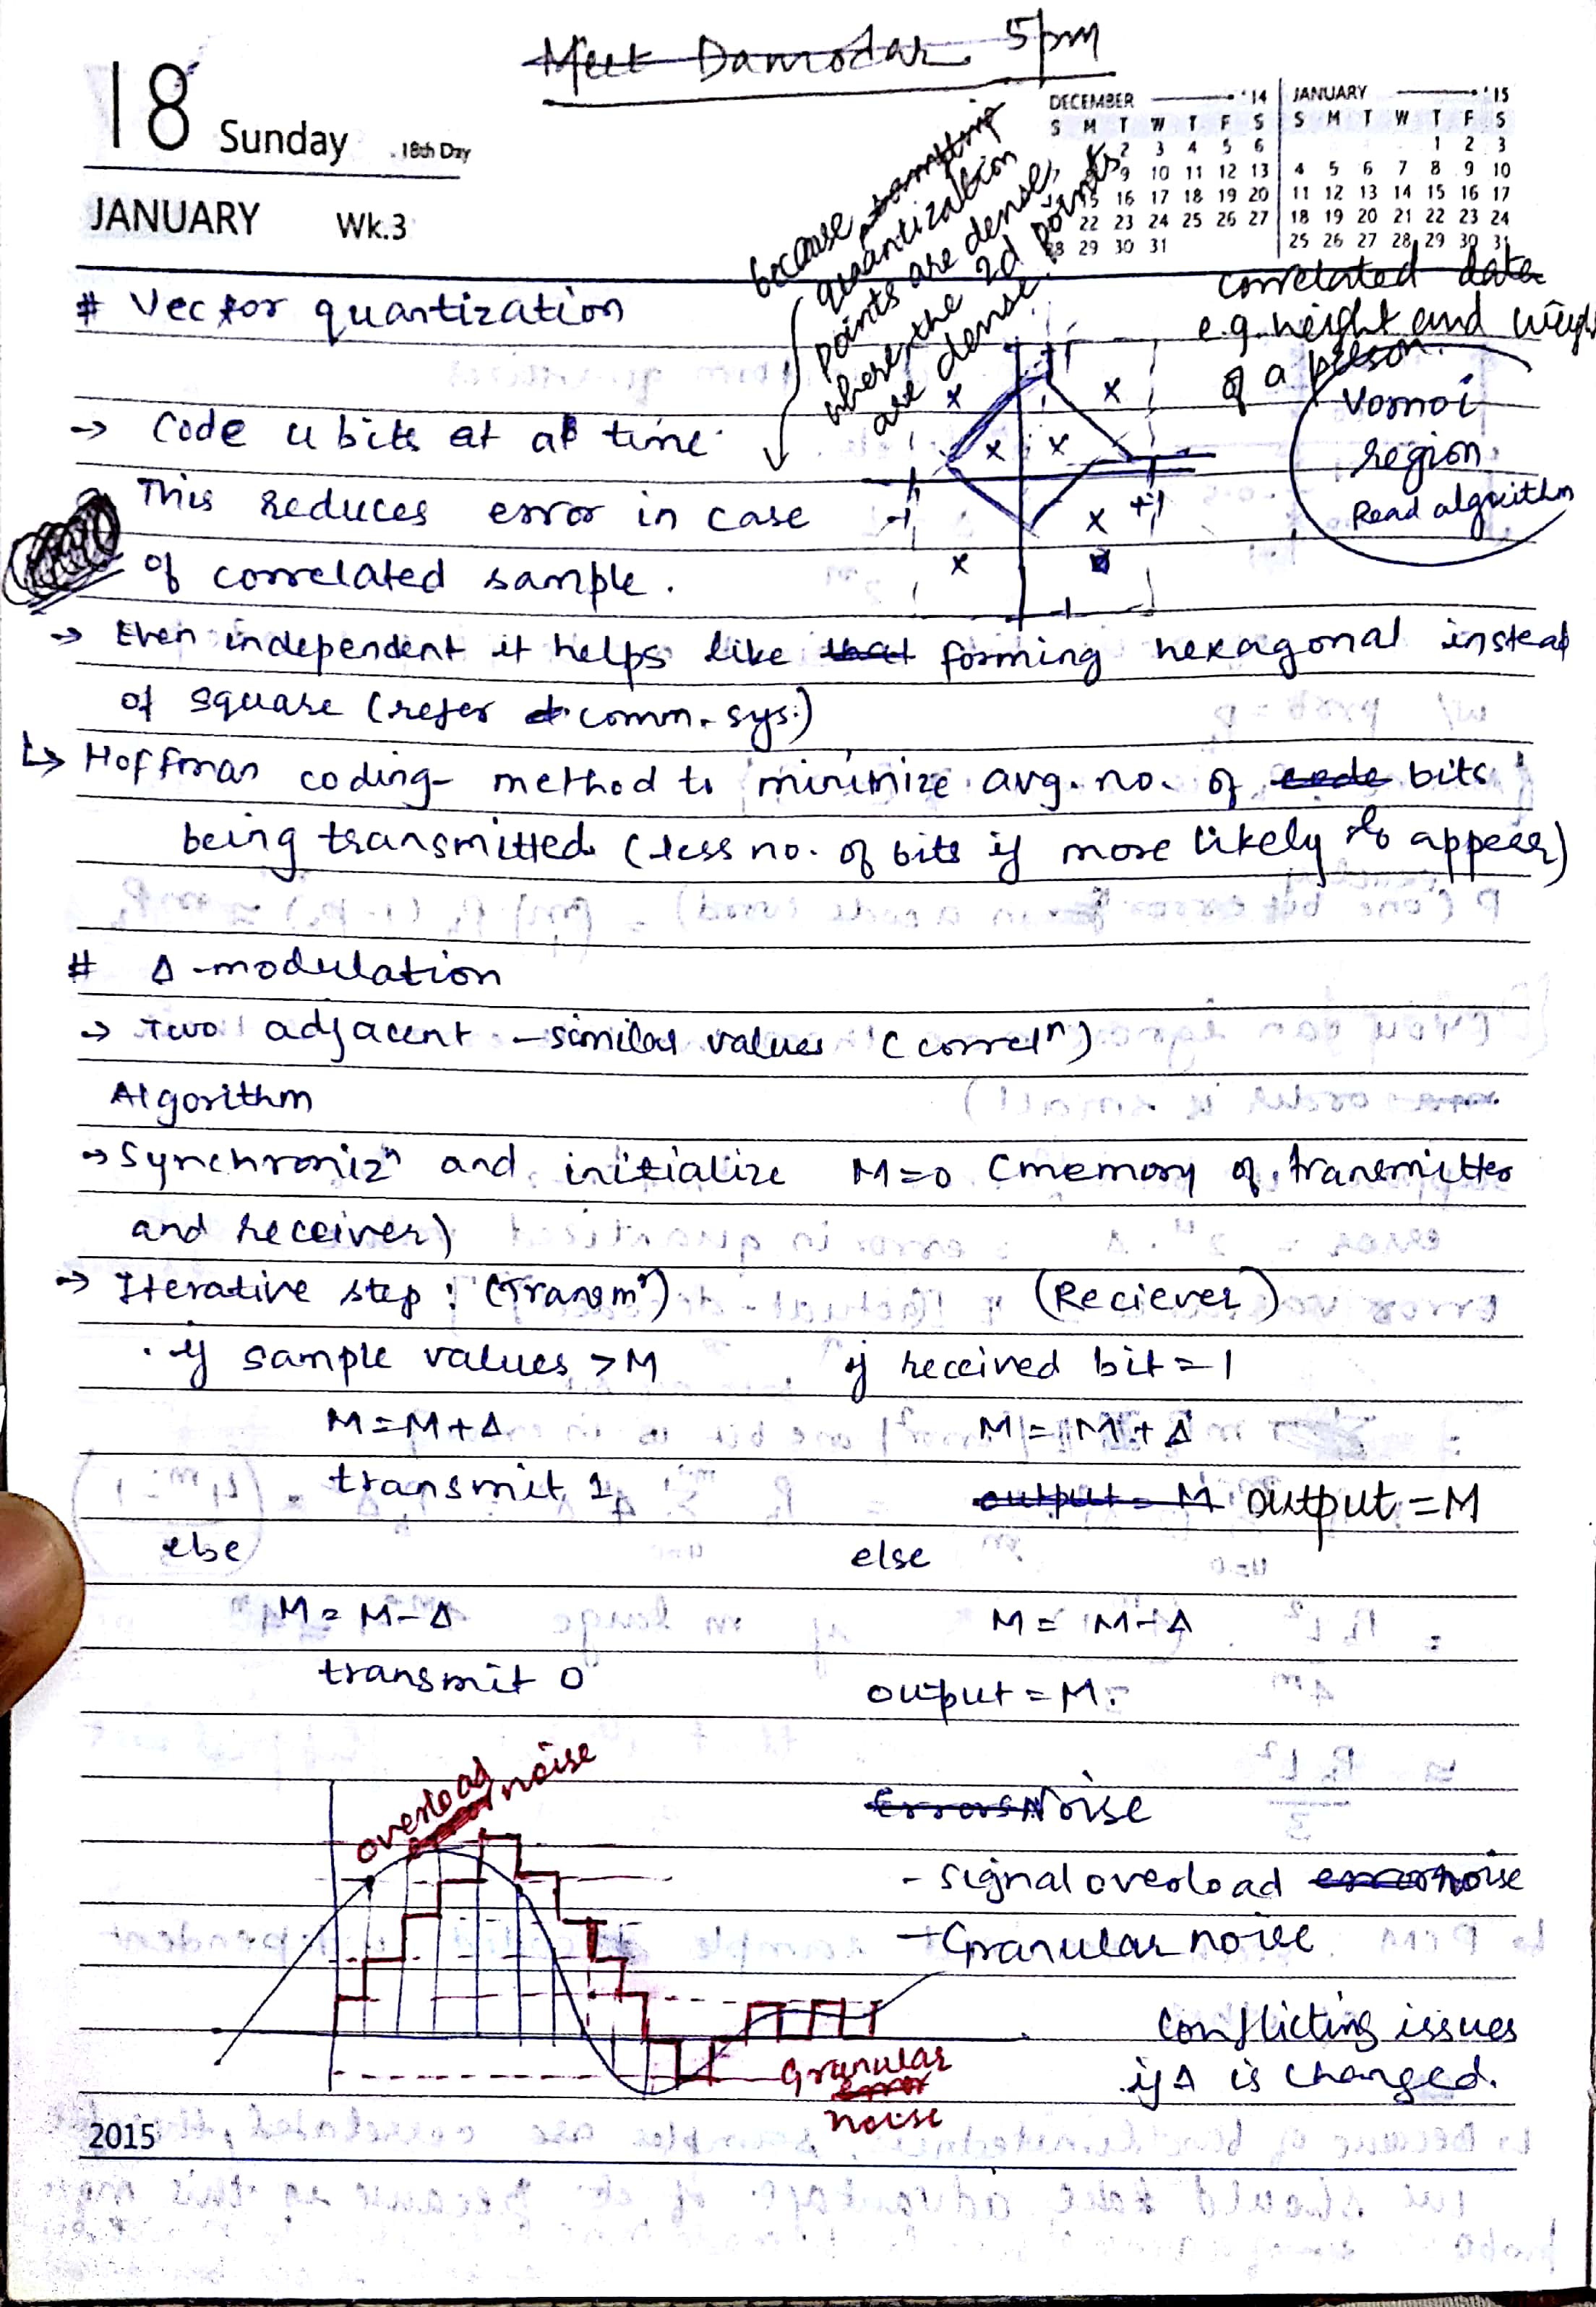 Meet Damodar 5pm
18 Sunday 18th Day
JANUARY Wk.3
DECEMBER '14 JANUARY '15
S M T W T F S S M T W T F S
2 3 4 5 6 1 2 3
9 10 11 12 13 4 5 6 7 8 9 10
15 16 17 18 19 20 11 12 13 14 15 16 17
22 23 24 25 26 27 18 19 20 21 22 23 24
28 29 30 31 25 26 27 28 29 30 31
because something
quantization
points are dense,
where the 2d points
are dense.
correlated data
e.g. height and weigh
of a person.
# Vector quantization
-1 +1
Vornoi
region
Read algorithm
→ Code u bits at a time
This reduces error in case
of correlated sample.
→ Even independent it helps like that forming hexagonal instead
of square (refer comm. sys.)
↳ Hoffman coding - method to minimize avg. no. of code bits
being transmitted (less no. of bits if more likely to appear)
# Δ-modulation
→ Two adjacent - similar values (correlⁿ)
Algorithm
→ Synchronizⁿ and initialize M=0 (memory of transmitter
and receiver)
→ Iterative step: (Transmʳ) (Reciever)
. if sample values > M if received bit = 1
M = M + Δ M = M + Δ
transmit 1 output = M output = M
else else
M = M - Δ M = M - Δ
transmit 0 output = M.
overload noise
Errors Noise
- signal overload error noise
- Granular noise
Conflicting issues
if Δ is changed.
Granular
error
noise
2015